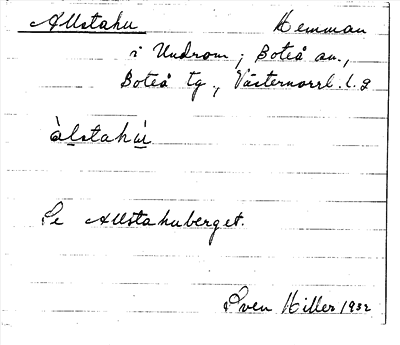 Allstahu Hemman
i Undrom; Boteå sn.,
Boteå tg., Västernorrl. l.
àlstahù
Se Allstahuberget.
Sven Hiller 1932